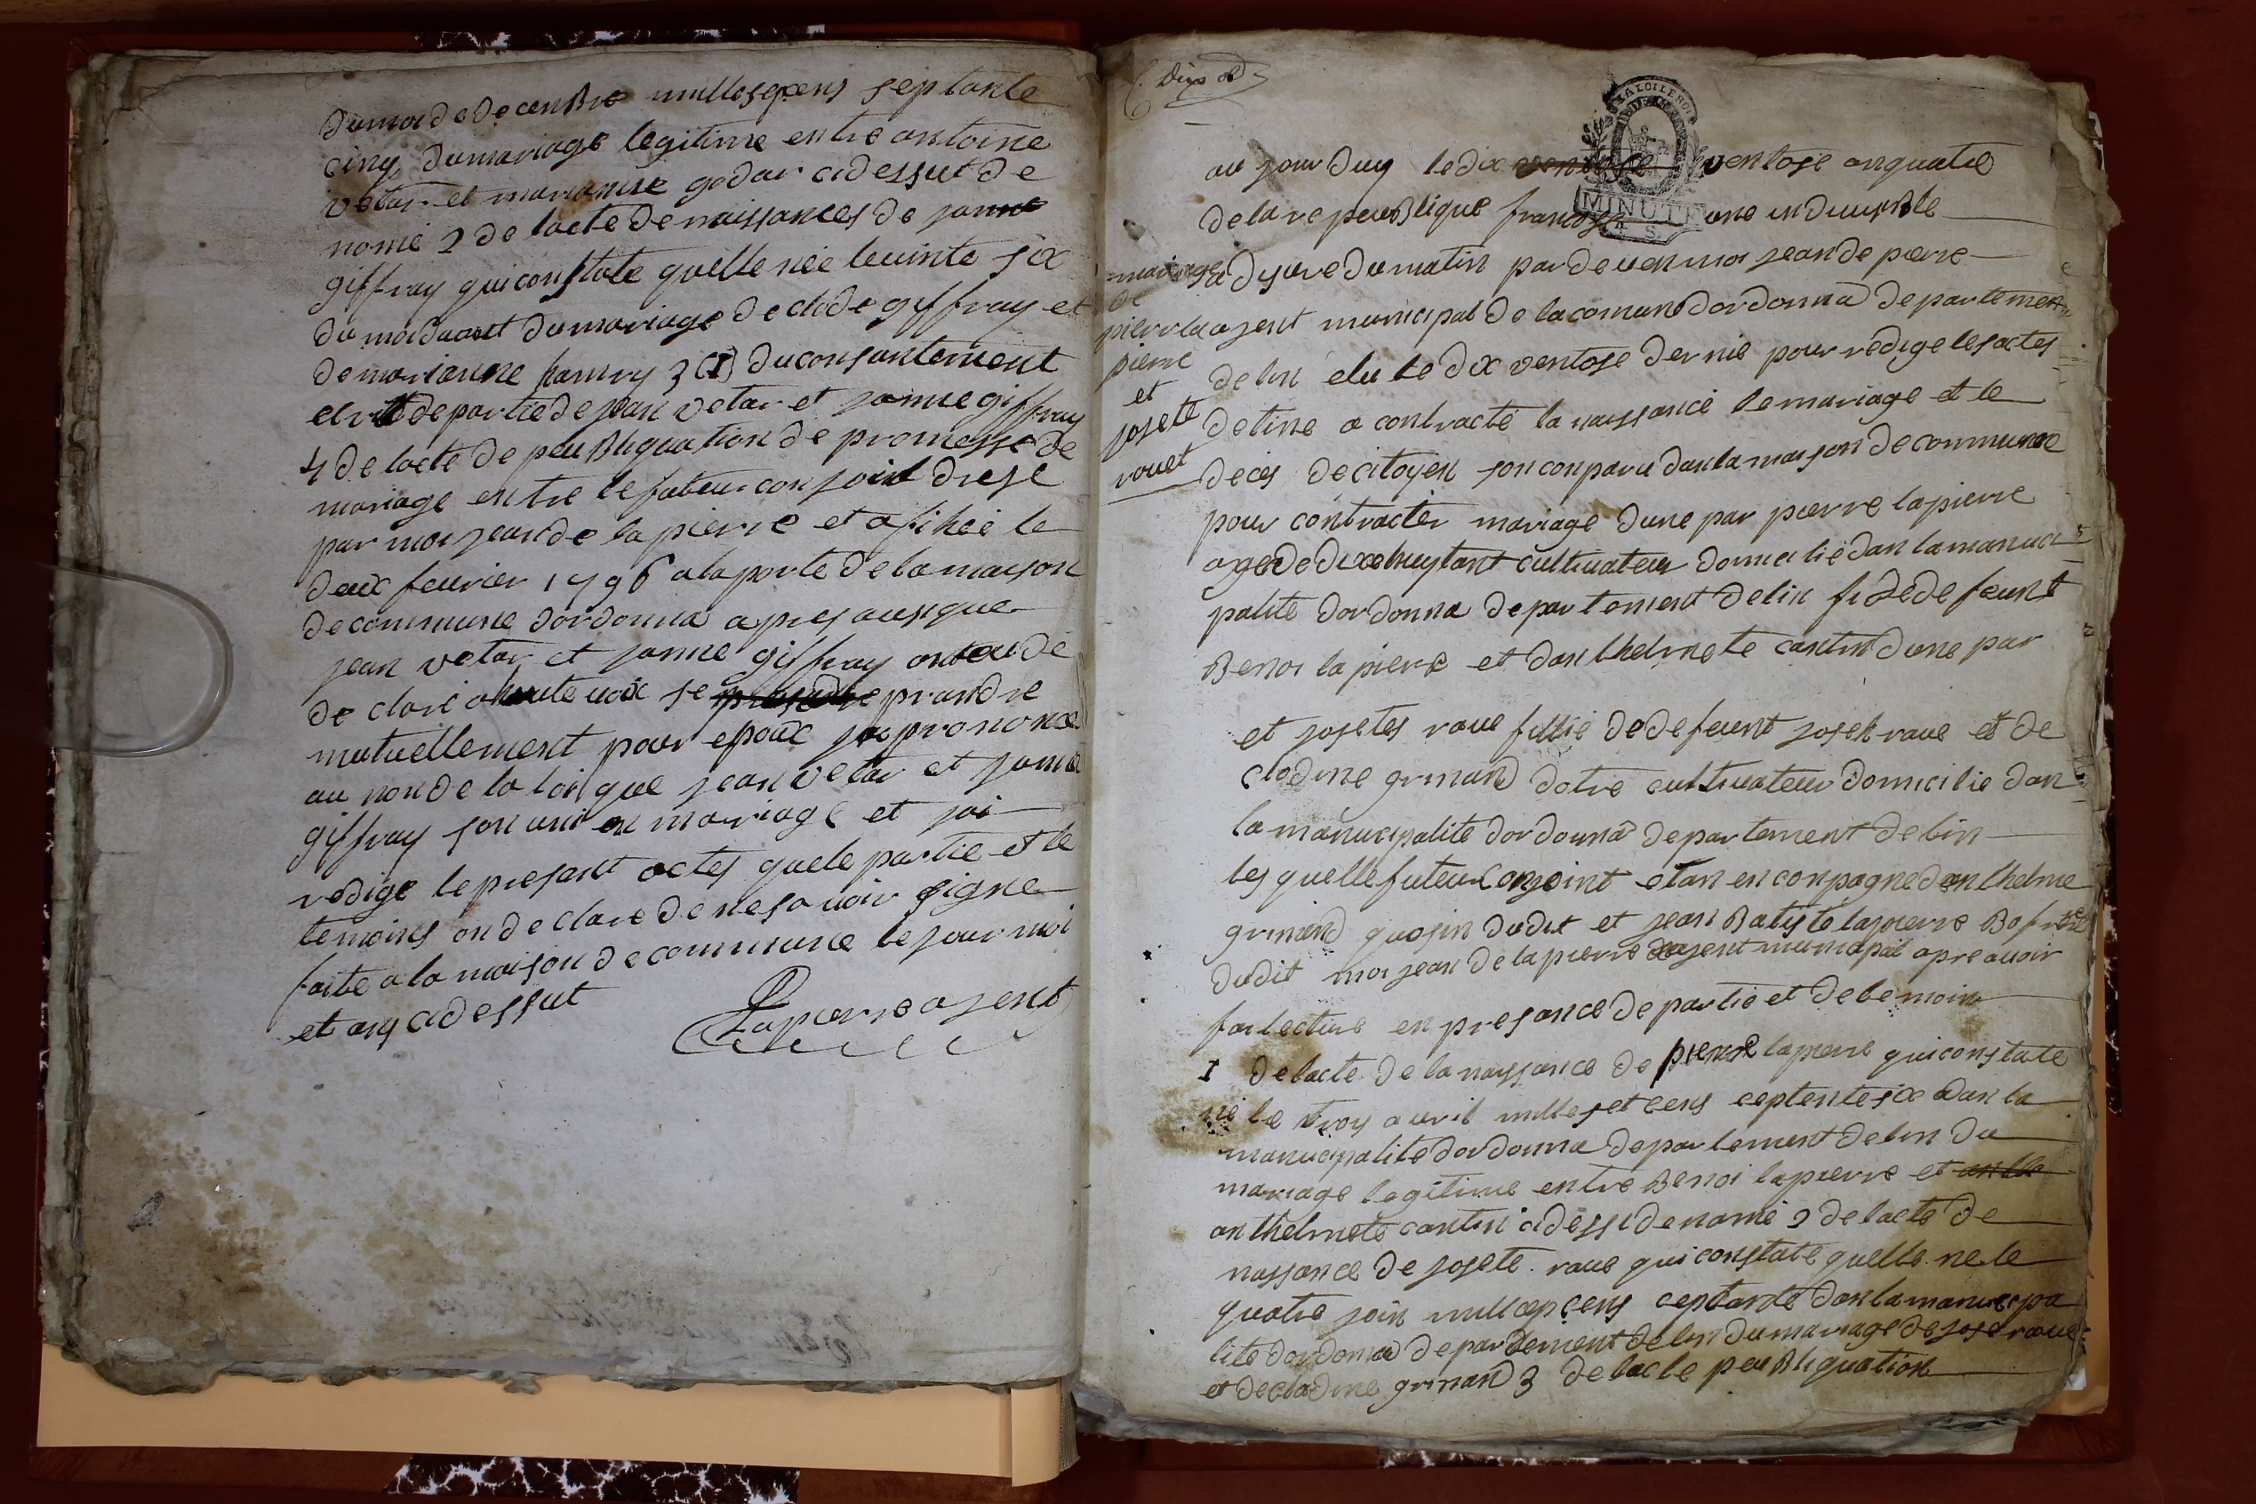 du moi de decenbre mille sepcens septante
cinq du mariage legitime entre antoine
vetar et marianne godar cidessut de
nomé 2 de lacte de naissances de janne
giffray qui constate quelle née le uinte six
du moi daout du mariage de clode giffray et
de marianne hamry 3 (I) du consantement
de partie de jean vetar et janne giffray
4 de lacte de peubliquation de promesse de
mariage entre le futeur conjoint dresé
par moi jean de lapierre et afihée le
deux feurier 1796 a la porte de la maison
de commune dordonna apres auoir que
jean vetar et janne giffray onteu dé
de claré a haute uoix se prandre
mutuellement pour epoux jai prononcé
au non de la loi que jean vetar et janne
giffray son uni en mariage et jai
redigé le present actes que le partie et le
temoins on de claré de ne sauoir signe
faite a la maison de commune le jour moi
et anq cidessut
Lapierre agent
dix
A LA LOI LE ROI
MINUTE
mariage
de
pierre la
pierre
et
josete
rouet
au jour duy le dix ventose ventose anquatre
de la republique francoise une indiuisible
a dis ure du matin par deuen moi jean de pierre
agent municipal de la comune dordonna departemen
de lin elu le dix ventose dernié pour rédige les actes
detiné a contracté la naissance le mariage et le
deces de citoyen son conparu dan la maison de commune
pour contracter mariage dune par pierre lapierre
agé de dixehuytant cultiuateur domicilié dan la manuci
palité dordonna departement de lin fiz de defeunt
Benoi lapierre et danthelmete cantin dune par
et josetes raue fillié de defeunt josep raue et de
clodine grinand dotre cultiuateur domicilié dan
la manucipalité dordonna departement de lin
les quelle futeur conjoint etan en conpagne danthelme
grinand quosin dudit et jean Batiste lapierre Bofrere
dudit moi jean de lapierre agent municipal apre auoir
fai lecture en presance de partie et de temoin
1 de lacte de la naissance de pierre lapierre qui constate
né le troy auril mille set cens ceptente six dan la
manucipalité dordonna departement de lin du
mariage legitime entre Benoi lapierre et
anthelmete cantin cidéssi denomé 2 de lacte de
naissance de josete raue qui constate quelle ne le
quatre join mille cepcens ceptante dan la manucipa
lité dordonna departement de lin du mariage de jose raue
et de clodine grinand 3 de lacte peubliquation